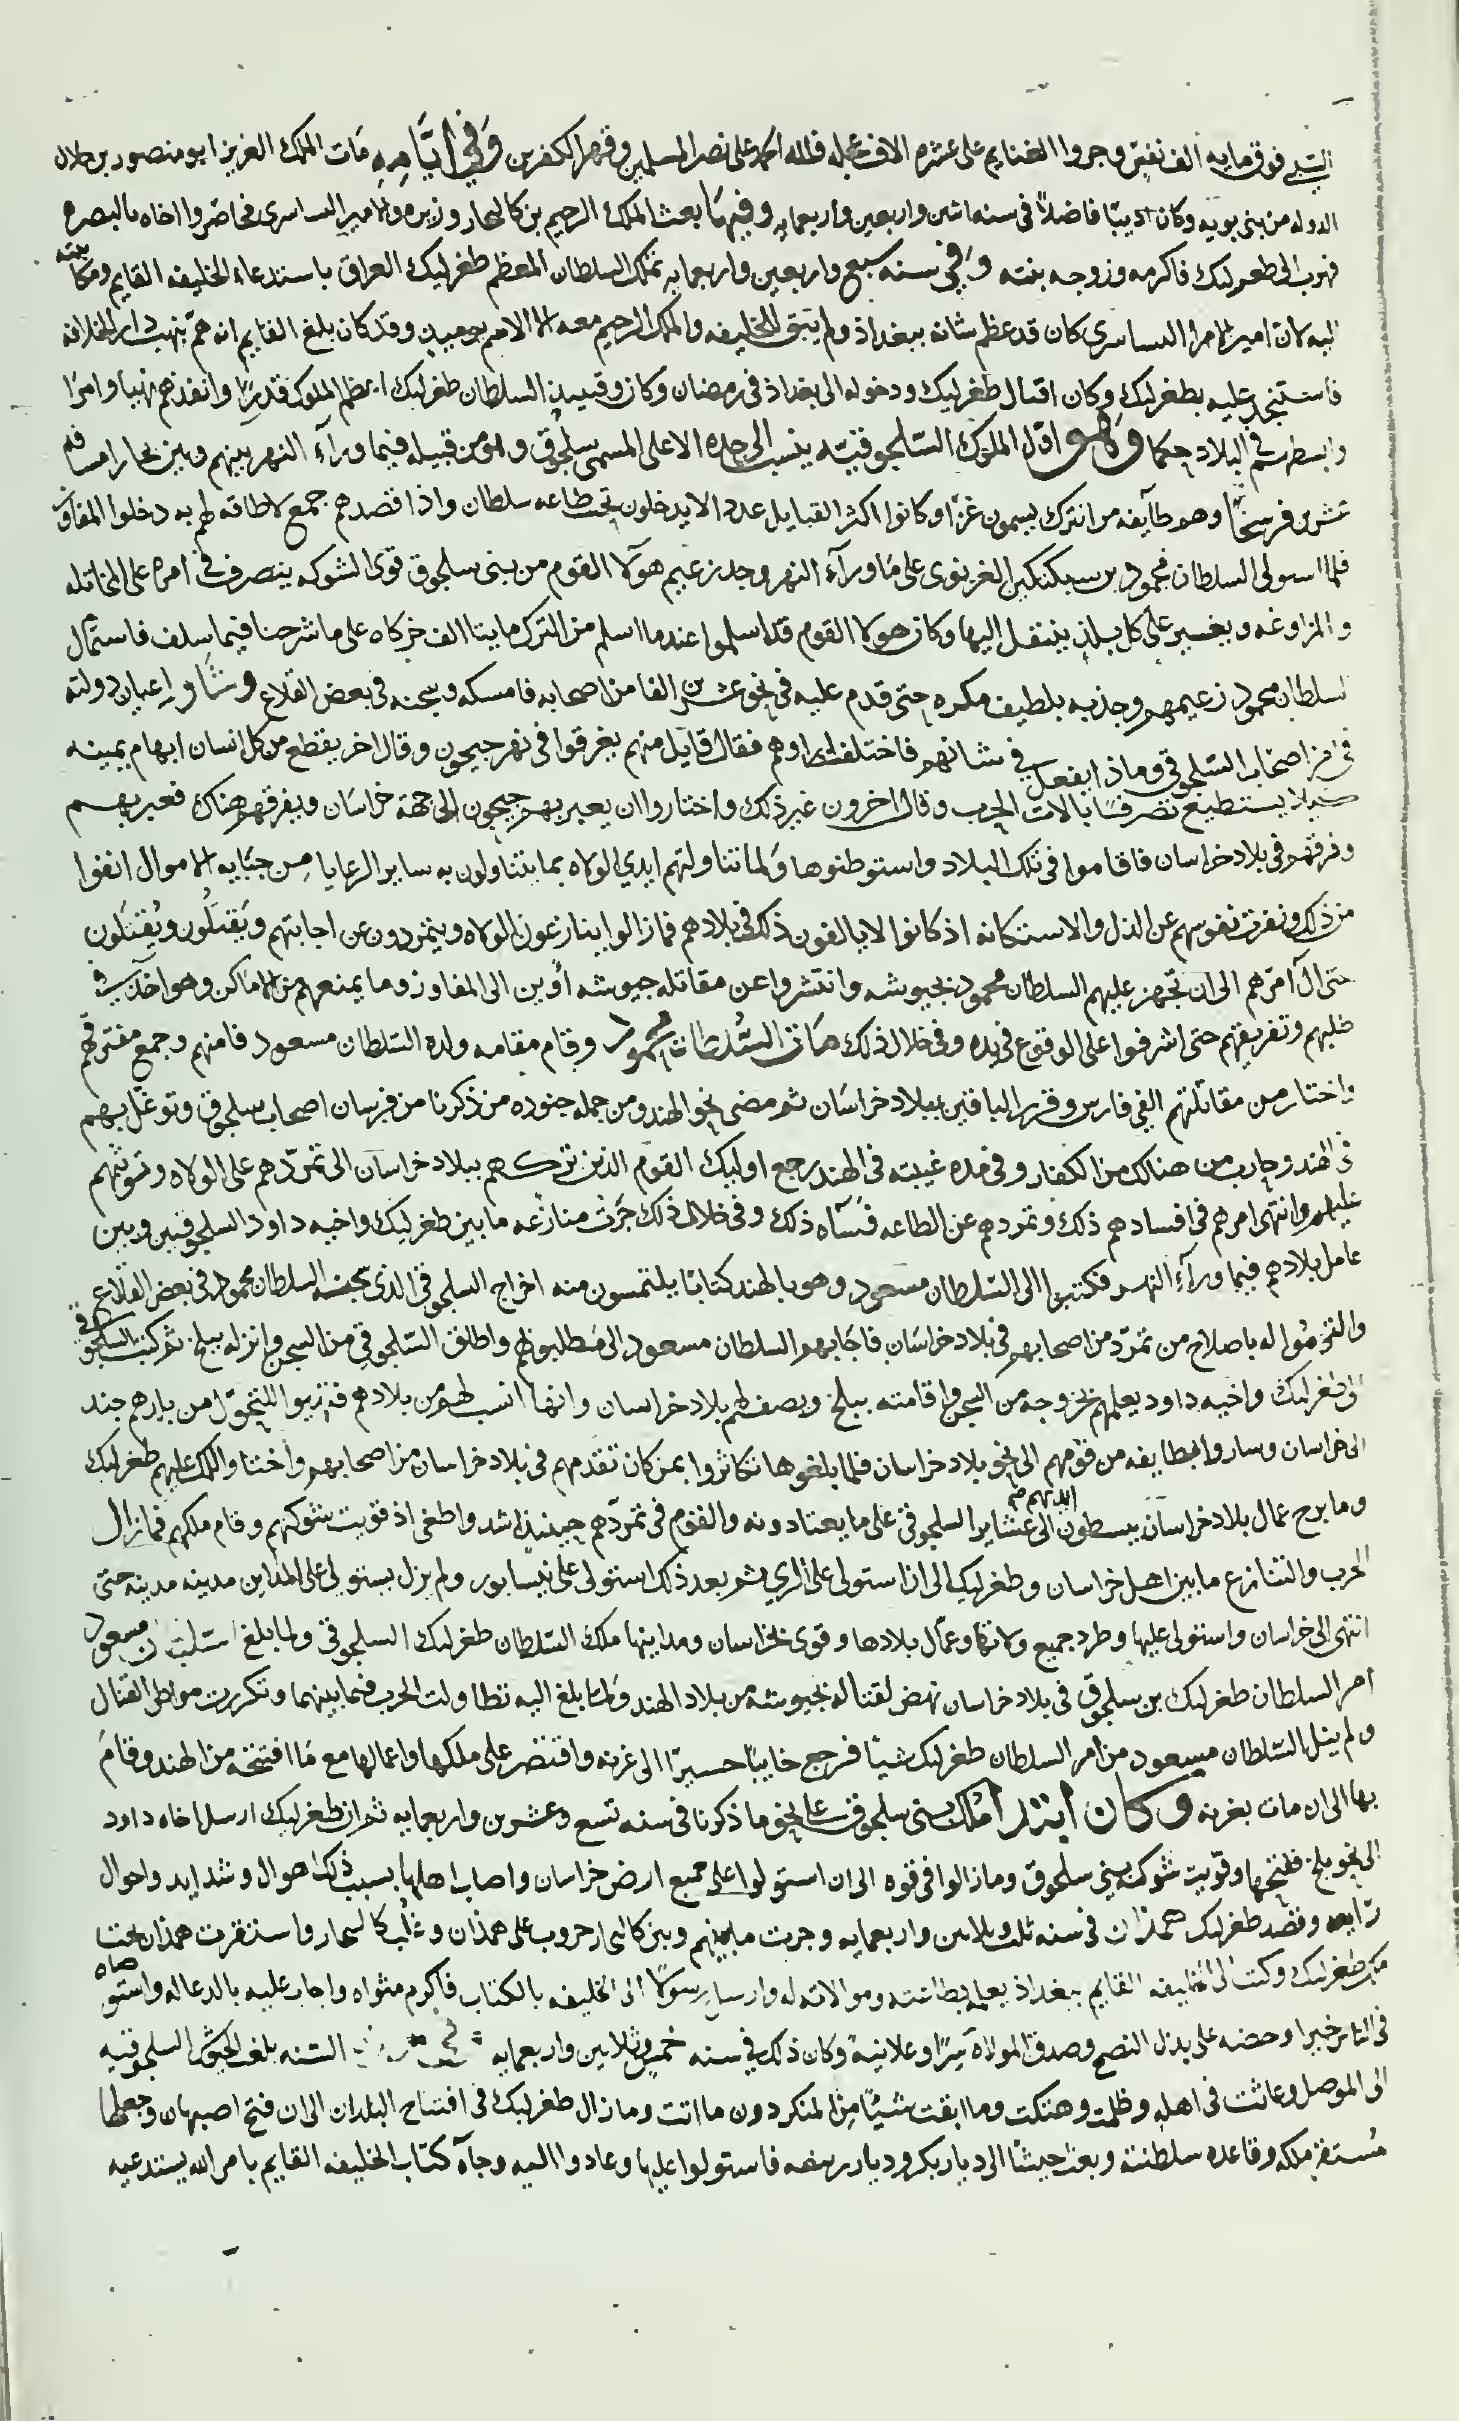 السبي فوق مايه الف نفس وجروا الغنايم على عشره الاف عجله فلله الحمد على نصر المسلمين وقهر الكفرين وفي ايامه مات الملك العزيز ابو منصور بن جلال
الدوله من بني بويه وكان اديبا فاضلا في سنه اثنين واربعين واربعمايه وفيها بعث الملك الرحيم بن كاليجار وزيره والامير البساسري فحاصروا اخاه بالبصره
فهرب الى طغرلبك فاكرمه وزوجه بنته وفي سنه سبع واربعين واربعمايه تملك السلطان المعظم طغرلبك العراق باستدعاء الخليفه القايم ومكاتبته
اليه لان امير الامرا البساسري كان قد عظم شانه ببغداذ ولم يبق للخليفه والملك الرحيم معه الا الاسم وقد كان بلغ القايم انه هم بنهب دار الخلافه
فاستنجد عليه بطغرلبك وكان اقبال طغرلبك ودخوله الى بغداذ في رمضان وكان وقتيذ السلطان طغرلبك اعظم الملوك قدرا وانفذهم نهيا وامرا
وابسطهم في البلاد حكما وهو اول الملوك السلجوقيه ينسب الى جده الاعلى المسمى سلجوق وهو من قبيله فيما ورآء النهر بينهم وبين بخارا مسافه
عشرين فرسخا وهو طآيفه من اترك يسمون غزا وكانوا اكثر القبايل عددا لا يدخلون تحت طاعه سلطان واذا قصدهم جمع لا طاقه لهم به دخلوا المفاوز
فلما استولى السلطان محمود بن سبكتكين الغزنوي على ما ورآء النهر وجد زعيم هولا القوم من بني سلجوق قوي الشوكه يتصرف في امره على المخاتله
والمراوغه ويغير على كل بلد ينتقل اليها وكان هولا القوم قد اسلموا عندما اسلم من الترك مايتا الف خركاه على ما شرحنا فيما سلف فاستمال
السلطان محمود زعيمهم وجذبه بلطيف مكره حتى قدم عليه في نحو عشرين الفا من اصحابه فامسكه وسجنه في بعض القلاع وشاور اعيان دولته
في امر اصحاب السلجوقي وماذا يفعل في شانهم فاختلفت اراوهم فقال قايل منهم يغرقوا في نهر جيحون وقال اخر يقطع من كل انسان ابهام يمينه
حتى لا يستطيع تصرفا بالات الحرب وقال اخرون غير ذلك واختاروا ان يعبر بهم جيحون الى جهة خراسان ويفرقهم هناك فعبر بهم
وفرقهم في بلاد خراسان فاقاموا في تلك البلاد واستوطنوها ولما تناولتهم ايدي الولاه بما يتناولون به ساير الرعايا من جبايه الاموال انفوا
من ذلك ونفرت نفوسهم عن الذل والاستكانه اذ كانوا لا يالفون ذلك في بلادهم فما زالوا ينازعون الولاه ويتمردون عن اجابتهم ويقتلون ويقتلون
حتى آل امرهم الى ان تجهز عليهم السلطان محمود بجيوشه وانتشروا عن مقاتله جيوشه اوين الى المفاوز وما يمنعهم من الاماكن وهو اخذ في
طلبهم وتفريقهم حتى اشرفوا على الوقوع في يده وفي خلال ذلك مات السلطان محمود وقام مقامه ولده السلطان مسعود فامنهم وجمع مفترقهم
واختار من مقاتلتهم الفي فارس وقرر الباقين ببلاد خراسان ثم مضى نحو الهند ومن جمله جنوده من ذكرنا من فرسان اصحاب سلجوق وتوغل بهم
في الهند وحارب من هنالك من الكفار وفي مده غيبته في الهند رجع اوليك القوم الذين تركهم ببلاد خراسان الى تمردهم على الولاه وتوثبهم
عليهم وانتهى امرهم في افسادهم ذلك وتمردهم عن الطاعه فسآه ذلك وفي خلال ذلك جرت منازعه ما بين طغرلبك واخيه داود السلجوقيين وبين
عامل بلادهم فيما ورآء النهر فكتبوا الى السلطان مسعود وهو بالهند كتابا يلتمسون منه اخراج السلجوقي الذي سجنه السلطان محمود في بعض القلاع
والتزموا له باصلاح من تمرد من اصحابهم في بلاد خراسان فاجابهم السلطان مسعود الى مطلبهم واطلق السلجوقي من السجن وانزله ببلخ ثم كتب السلجوقي
الى طغرلبك واخيه داود يعلمهم بخروجه من السجن واقامته ببلخ ويصف لهم بلاد خراسان وانها انسب لهم من بلادهم للتحول من ديارهم
الى خراسان وساروا بطايفه من قومهم الى نحو بلاد خراسان فلما بلغوها تكاثروا بمن كان تقدمهم في بلاد خراسان من اصحابهم واختاروا الملك عليهم طغرلبك
وما برح عمال بلاد خراسان يبسطون ايديهم الى عشاير السلجوقي على ما يعتادونه والقوم في تمردهم حينيذ اشد واطغى اذ قويت شوكتهم وقام ملكهم فما زال
الحرب والتنازع ما بين اهل خراسان وطغرلبك الى ان استولى على الري ثم بعد ذلك استولى على نيسابور ولم يزل يستولي على المداين مدينه مدينه حتى
انتهى الى خراسان واستولى عليها وطرد جميع ولاتها وعمال بلادها وقوي بخراسان ومداينها ملك السلطان طغرلبك السلجوقي ولما بلغ السلطان مسعود
امر السلطان طغرلبك بن سلجوق في بلاد خراسان نهض لقتاله بجيوشه من بلاد الهند ولما بلغ اليه تطاولت الحرب فيما بينهما وتكررت مواطن القتال
ولم ينل السلطان مسعود من امر السلطان طغرلبك شيا فرجع خايبا حسيرا الى غزنه واقتصر على ملكها واعمالها مع ما افتتحه من الهند وقام
بها الى ان مات بغزنه وكان ابتدا ملك بني سلجوق على نحو ما ذكرنا في سنه تسع وعشرين واربعمايه ثم ان طغرلبك ارسل اخاه داود
الى نحو بلخ ففتحها وقويت شوكه بني سلجوق وما زالوا في قوه الى ان استولوا على جميع ارض خراسان واصاب اهلها بسبب ذلك اهوال وشدايد واحوال
رايعه وقصد طغرلبك همذان في سنه ثلث وثلاثين واربعمايه وجرت ما بينهم وبين كاليجار حروب على همذان وغلب كاليجار واستقرت همذان تحت
ملك طغرلبك وكتب الى الخليفه القايم ببغداذ يعلمه بطاعته وموالاته له وارسل رسولا الى الخليفه بالكتاب فاكرم مثواه واجاب عليه بالدعا له واستوصاه
في الناس خيرا وحضه على بذل النصح وصدق الموالاة سرا وعلانية وكان ذلك في سنه خمس وثلاثين واربعمايه وفي هذه السنه بلغ الجيوش السلجوقيه
الى الموصل وعاثت في اهله وظلمت وهتكت وما ابقت شيا من المنكر دون ما اتت وما زال طغرلبك في افتتاح البلدان الى ان فتح اصبهان وجعلها
مستقر ملكه وقاعده سلطنته وبعث جيشا الى ديار بكر وديار ربيعه فاستولوا عليها وعادوا اليه وجآه كتاب الخليفه القايم بامر الله يستدعيه